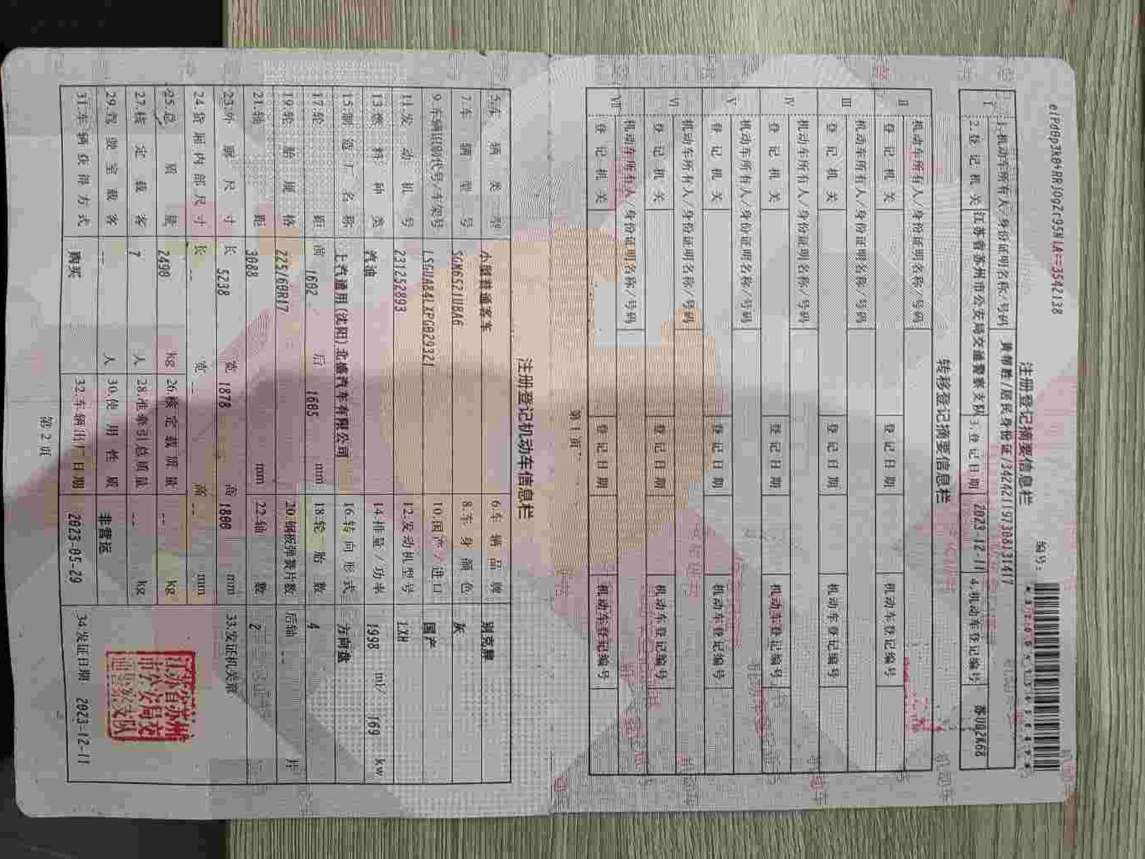 注册登记摘要信息栏
编号:
1.机动车所有人/身份证明名称/号码 黄帮胜/居民身份证/342421197308131417
2.登记机关 江苏省苏州市公安局交通警察支队 3.登记日期 2023-12-11 4.机动车登记编号
转移登记摘要信息栏
II 机动车所有人/身份证明名称/号码
登记机关 登记日期 机动车登记编号
III 机动车所有人/身份证明名称/号码
登记机关 登记日期 机动车登记编号
IV 机动车所有人/身份证明名称/号码
登记机关 登记日期 机动车登记编号
V 机动车所有人/身份证明名称/号码
登记机关 登记日期 机动车登记编号
VI 机动车所有人/身份证明名称/号码
登记机关 登记日期 机动车登记编号
VII 机动车所有人/身份证明名称/号码
登记机关 登记日期 机动车登记编号
第1页
注册登记机动车信息栏
5.车辆类型 小型普通客车 6.车辆品牌 别克牌
7.车辆型号 SGM6521UBA6 8.车身颜色 灰
9.车辆识别代号/车架号 LSGUA84LXPG029321 10.国产/进口 国产
11.发动机号 231252893 12.发动机型号 LXH
13.燃料种类 汽油 14.排量/功率 1998 ml/ 169 kw
15.制造厂名称 上汽通用(沈阳)北盛汽车有限公司 16.转向形式 方向盘
17.轮距 前 1602 后 1605 mm 18.轮胎数 4
19.轮胎规格 225/60R17 20.钢板弹簧片数 后轴 -- 片
21.轴距 3088 mm 22.轴数 2
23.外廓尺寸 长 5238 宽 1878 高 1800 mm 33.发证机关章
24.货厢内部尺寸 长 -- 宽 -- 高 -- mm
25.总质量 2490 kg 26.核定载质量 -- kg
27.核定载客 7 人 28.准牵引总质量 -- kg
29.驾驶室载客 -- 人 30.使用性质 非营运
31.车辆获得方式 购买 32.车辆出厂日期 2023-05-29 34.发证日期 2023-12-11
江苏省苏州
市公安局交
通警察支队
第2页